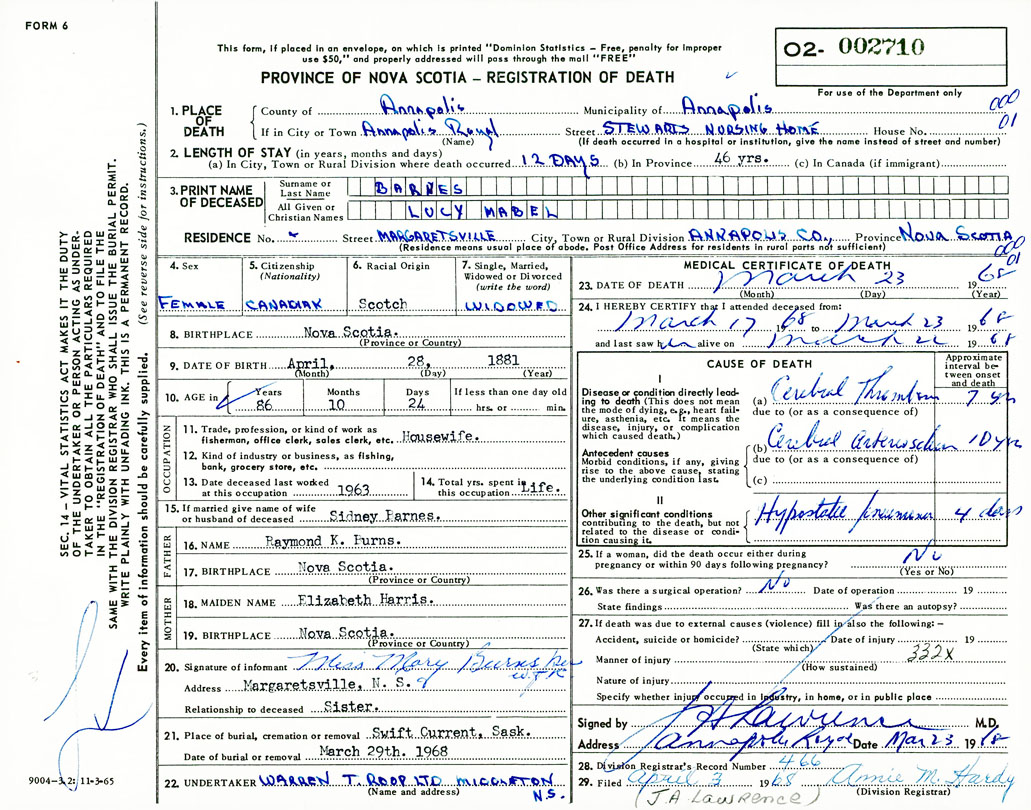 FORM 6
This form, if placed in an envelope, on which is printed "Dominion Statistics – Free, penalty for improper
use $50," and properly addressed will pass through the mail "FREE"
PROVINCE OF NOVA SCOTIA – REGISTRATION OF DEATH
02- 002710
For use of the Department only
000
01
1. PLACE OF DEATH
County of Annapolis Municipality of Annapolis
If in City or Town Annapolis Royal Street STEWARTS NURSING HOME House No.
(Name) (If death occurred in a hospital or institution, give the name instead of street and number)
2. LENGTH OF STAY (in years, months and days)
(a) In City, Town or Rural Division where death occurred 12 DAYS (b) In Province 46 yrs. (c) In Canada (if immigrant)
3. PRINT NAME OF DECEASED
Surname or Last Name BARNES
All Given or Christian Names LUCY MABEL
RESIDENCE No. Street MARGARETSVILLE City, Town or Rural Division ANNAPOLIS CO, Province NOVA SCOTIA
(Residence means usual place of abode. Post Office Address for residents in rural parts not sufficient)
000
01
4. Sex
FEMALE
5. Citizenship
(Nationality)
CANADIAN
6. Racial Origin
Scotch
7. Single, Married,
Widowed or Divorced
(write the word)
WIDOWED
8. BIRTHPLACE Nova Scotia.
(Province or Country)
9. DATE OF BIRTH April, 28, 1881
(Month) (Day) (Year)
10. AGE in
Years Months Days If less than one day old
86 10 24 hrs. or min.
OCCUPATION
11. Trade, profession, or kind of work as
fisherman, office clerk, sales clerk, etc. Housewife.
12. Kind of industry or business, as fishing,
bank, grocery store, etc.
13. Date deceased last worked
at this occupation 1963
14. Total yrs. spent in
this occupation Life.
15. If married give name of wife
or husband of deceased Sidney Barnes.
FATHER
16. NAME Raymond K. Burns.
17. BIRTHPLACE Nova Scotia.
(Province or Country)
MOTHER
18. MAIDEN NAME Elizabeth Harris.
19. BIRTHPLACE Nova Scotia.
(Province or Country)
20. Signature of informant Miss Mary Burns per
Address Margaretsville, N. S.
Relationship to deceased Sister.
21. Place of burial, cremation or removal Swift Current, Sask.
Date of burial or removal March 29th. 1968
22. UNDERTAKER WARREN T. ROOP LTD. MIDDLETON
(Name and address) N.S.
MEDICAL CERTIFICATE OF DEATH
23. DATE OF DEATH March 23 1968
(Month) (Day) (Year)
24. I HEREBY CERTIFY that I attended deceased from:
March 17 1968 to March 23 1968
and last saw her alive on March 22 1968
CAUSE OF DEATH
Approximate
interval be-
tween onset
and death
I
Disease or condition directly lead-
ing to death (This does not mean
the mode of dying, e.g., heart fail-
ure, asthenia, etc. It means the
disease, injury, or complication
which caused death.)
(a) Cerebral Thrombosis 7 yrs
due to (or as a consequence of)
Antecedent causes
Morbid conditions, if any, giving
rise to the above cause, stating
the underlying condition last.
(b) Cerebral Arteriosclerosis 10 yrs
due to (or as a consequence of)
(c)
II
Other significant conditions
contributing to the death, but not
related to the disease or condi-
tion causing it.
Hypostatic pneumonia 4 days
25. If a woman, did the death occur either during
pregnancy or within 90 days following pregnancy? No
(Yes or No)
26. Was there a surgical operation? No Date of operation 19
State findings Was there an autopsy?
27. If death was due to external causes (violence) fill in also the following: –
Accident, suicide or homicide? Date of injury 19
(State which)
Manner of injury 332X
(How sustained)
Nature of injury
Specify whether injury occurred in Industry, in home, or in public place
Signed by J A Lawrence M.D.
Address Annapolis Royal Date Mar 23 1968
28. Division Registrar's Record Number 466
29. Filed April 3 1968 Annie M. Hardy
(Division Registrar)
(J.A LAWRENCE)
SEC. 14 – VITAL STATISTICS ACT MAKES IT THE DUTY
OF THE UNDERTAKER OR PERSON ACTING AS UNDER-
TAKER TO OBTAIN ALL THE PARTICULARS REQUIRED
IN THE "REGISTRATION OF DEATH" AND TO FILE THE
SAME WITH THE DIVISION REGISTRAR WHO SHALL ISSUE THE BURIAL PERMIT.
WRITE PLAINLY WITH UNFADING INK. THIS IS A PERMANENT RECORD.
Every item of information should be carefully supplied. (See reverse side for instructions.)
9004-3,2: 11-3-65